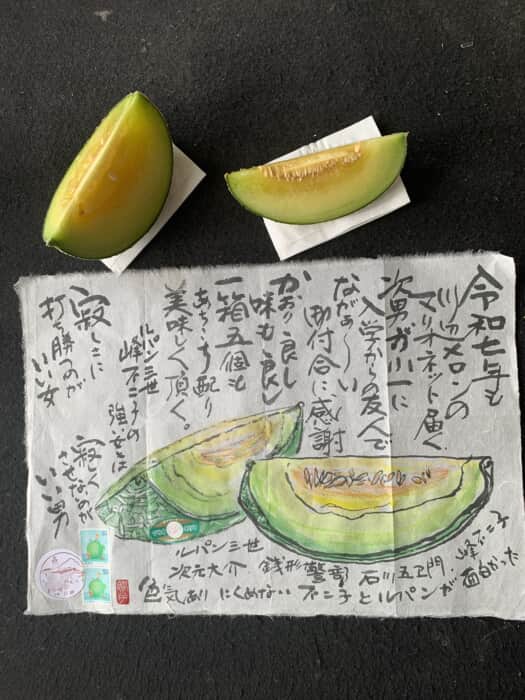 令和七年も
川辺メロンの
マリオネット届く
次男が小一に
入学からの友人で
ながぁ～い
御付合に感謝
かおり良し
味も良し
一箱五個も
あちこち配り
美味しく頂く。
ルパン三世
峰不二子の
強い女とは
寂しさに
打ち勝つのが
いい女
寂しく
させないのが
いい男
ルパン三世
次元大介 銭形警部 石川五ェ門、峰不二子
色気あり にくめない 不二子とルパンが面白かった